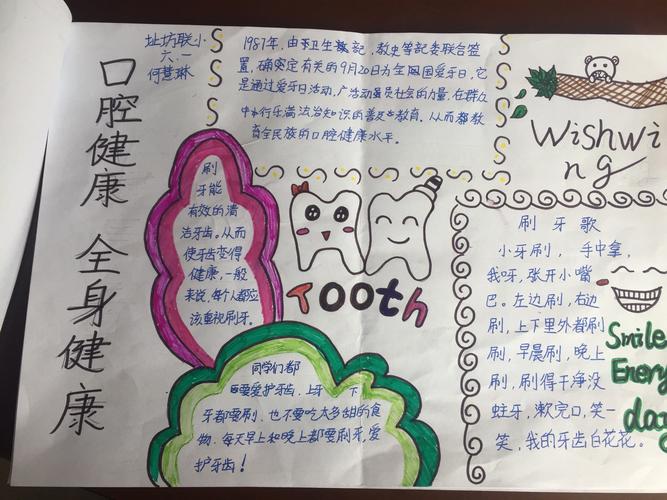 口腔健康 全身健康
址坊联小
六一
何慧琳
1987年,由 卫生 記,教史等記委联合签
置,确 定有关的9月20日为全 国爱牙日,它
是通过爱牙日活动,广活动 员社会的力量,在群众
中 行乐满法治知识的普 教育,从而都教
育全民族的口腔健康水平。
刷
牙能
有效的清
洁牙齿。从而
使牙齿变得
健康,一般
来说,每个人都应
该重视刷牙。
Tooth
同学们都
要爱护牙齿,上牙 下
牙都要刷,也不要吃太多甜的食
物,每天早上和晚上都要刷牙,爱
护牙齿!
Wishwi
ng
刷 牙 歌
小牙刷,手中拿,
我呀,张开小嘴
巴。左边刷,右边
刷,上下里外都刷
刷,早晨刷,晚上
刷,刷得干净没
蛀牙,漱完口,笑一
笑,我的牙齿白花花。
Smile
Every
day